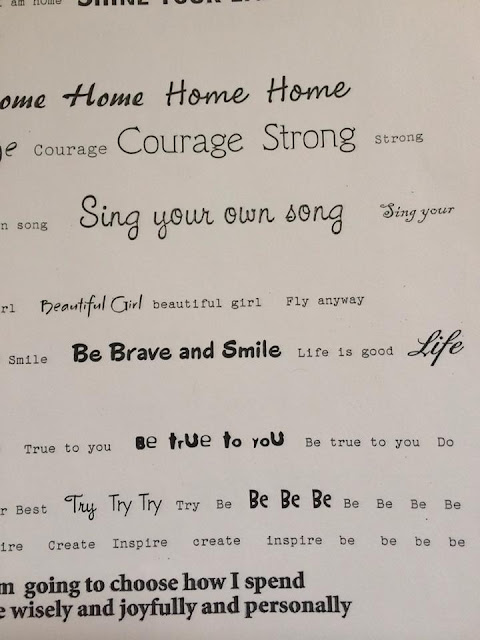 am home SHINE YOUR
ome Home Home Home
Courage Courage Strong Strong
n song Sing your own song Sing your
rl Beautiful Girl beautiful girl Fly anyway
Smile Be Brave and Smile Life is good Life
True to you Be trUe to yoU Be true to you Do
r Best Try Try Try Try Be Be Be Be Be Be Be Be
ire Create Inspire create inspire be be be be
m going to choose how I spend
e wisely and joyfully and personally